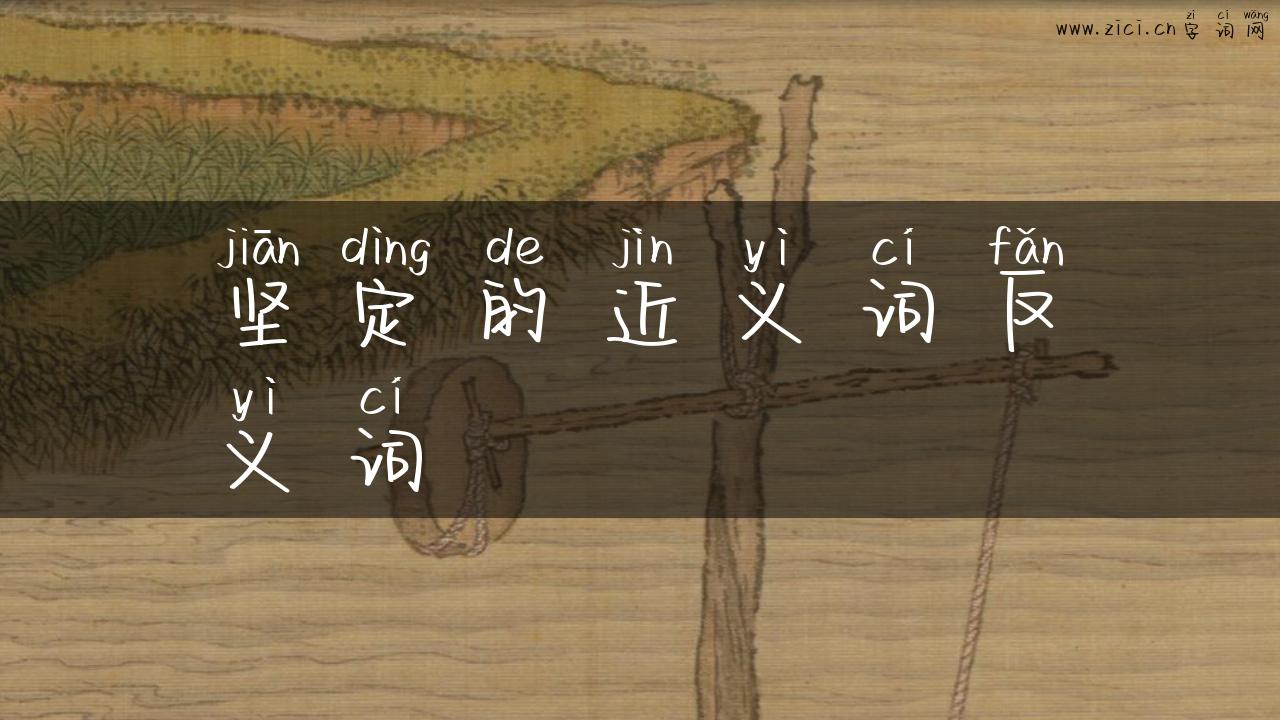 zì cí wǎng
www.zici.cn 字词网
jiān dìng de jìn yì cí fǎn
坚定的近义词反
yì cí
义词